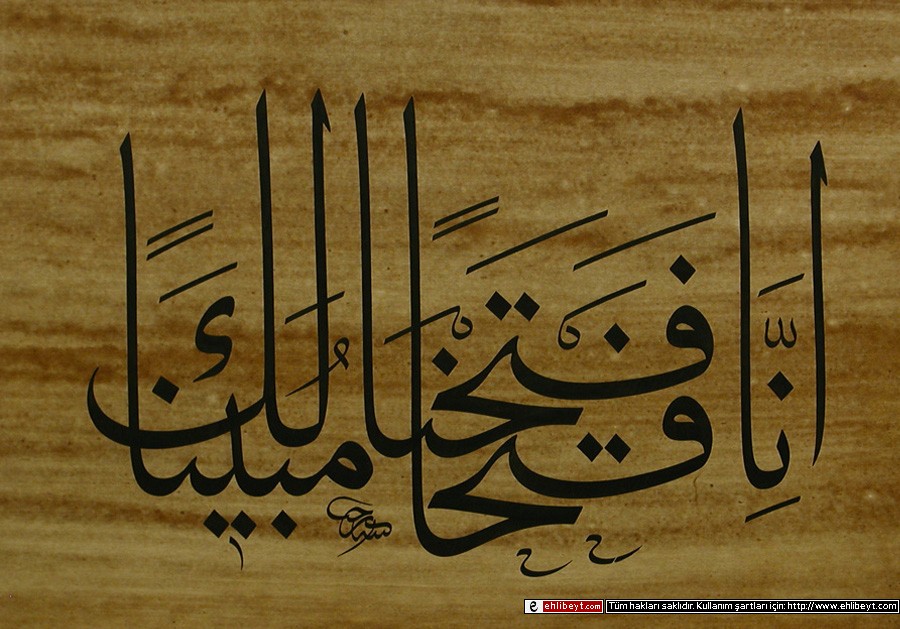 اِنَّا فَتَحْنَا لَكَ فَتْحًا مُبِينًا
e ehlibeyt.com Tüm hakları saklıdır. Kullanım şartları için: http://www.ehlibeyt.com